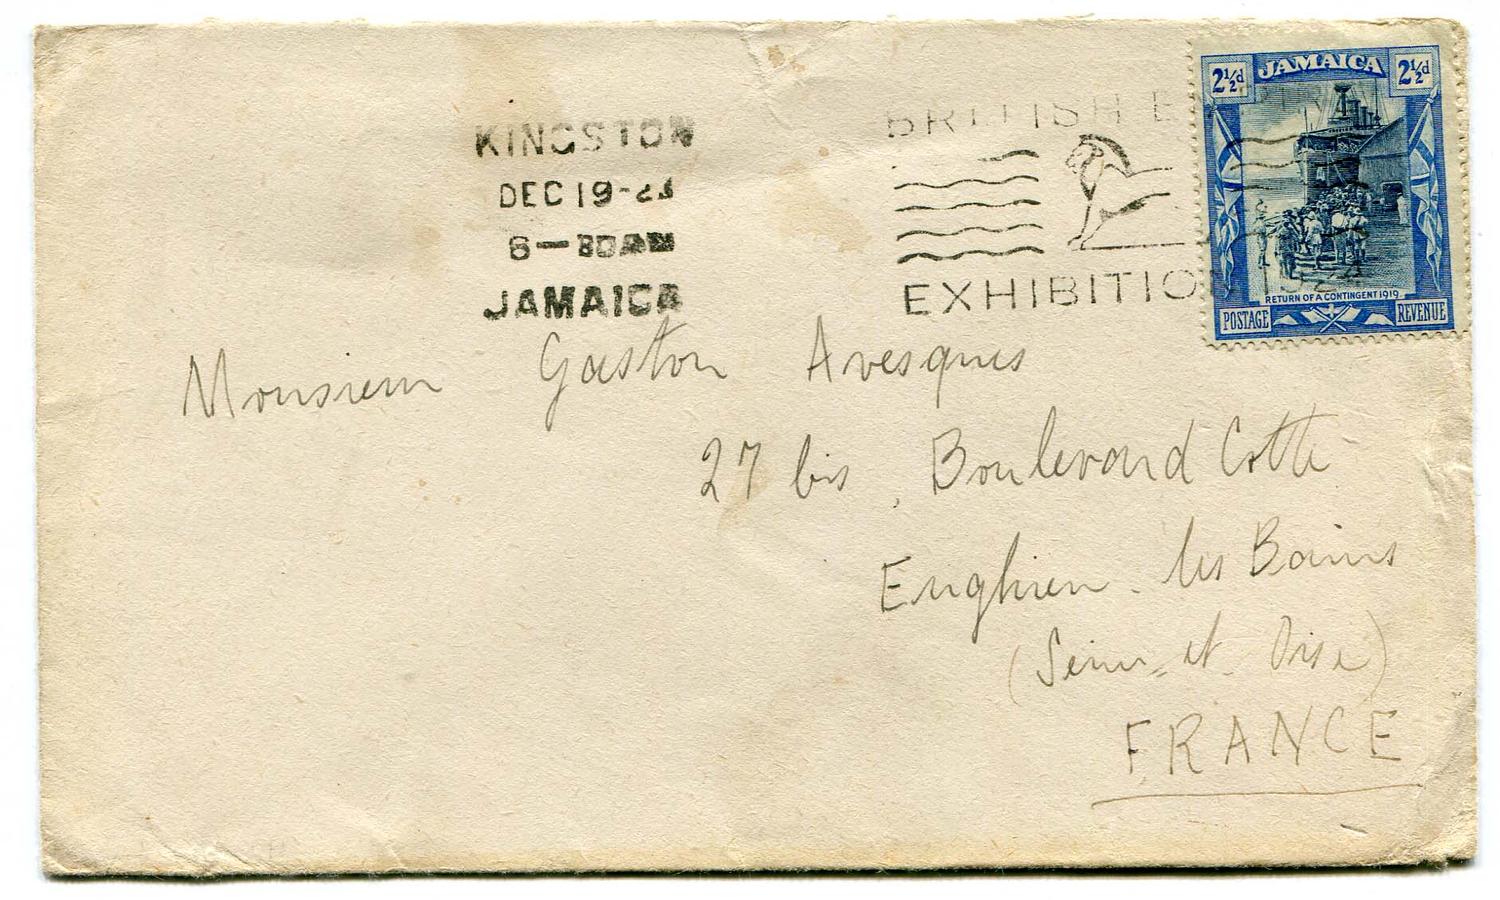 KINGSTON
DEC 19-23
6—30AM
JAMAICA
BRITISH EMPIRE
EXHIBITION 1924
2½d JAMAICA 2½d
RETURN OF A CONTINGENT 1919
POSTAGE REVENUE
Monsieur Gaston Avesques
27 bis, Boulevard Cotte
Enghien-les Bains
(Seine-et-Oise)
FRANCE